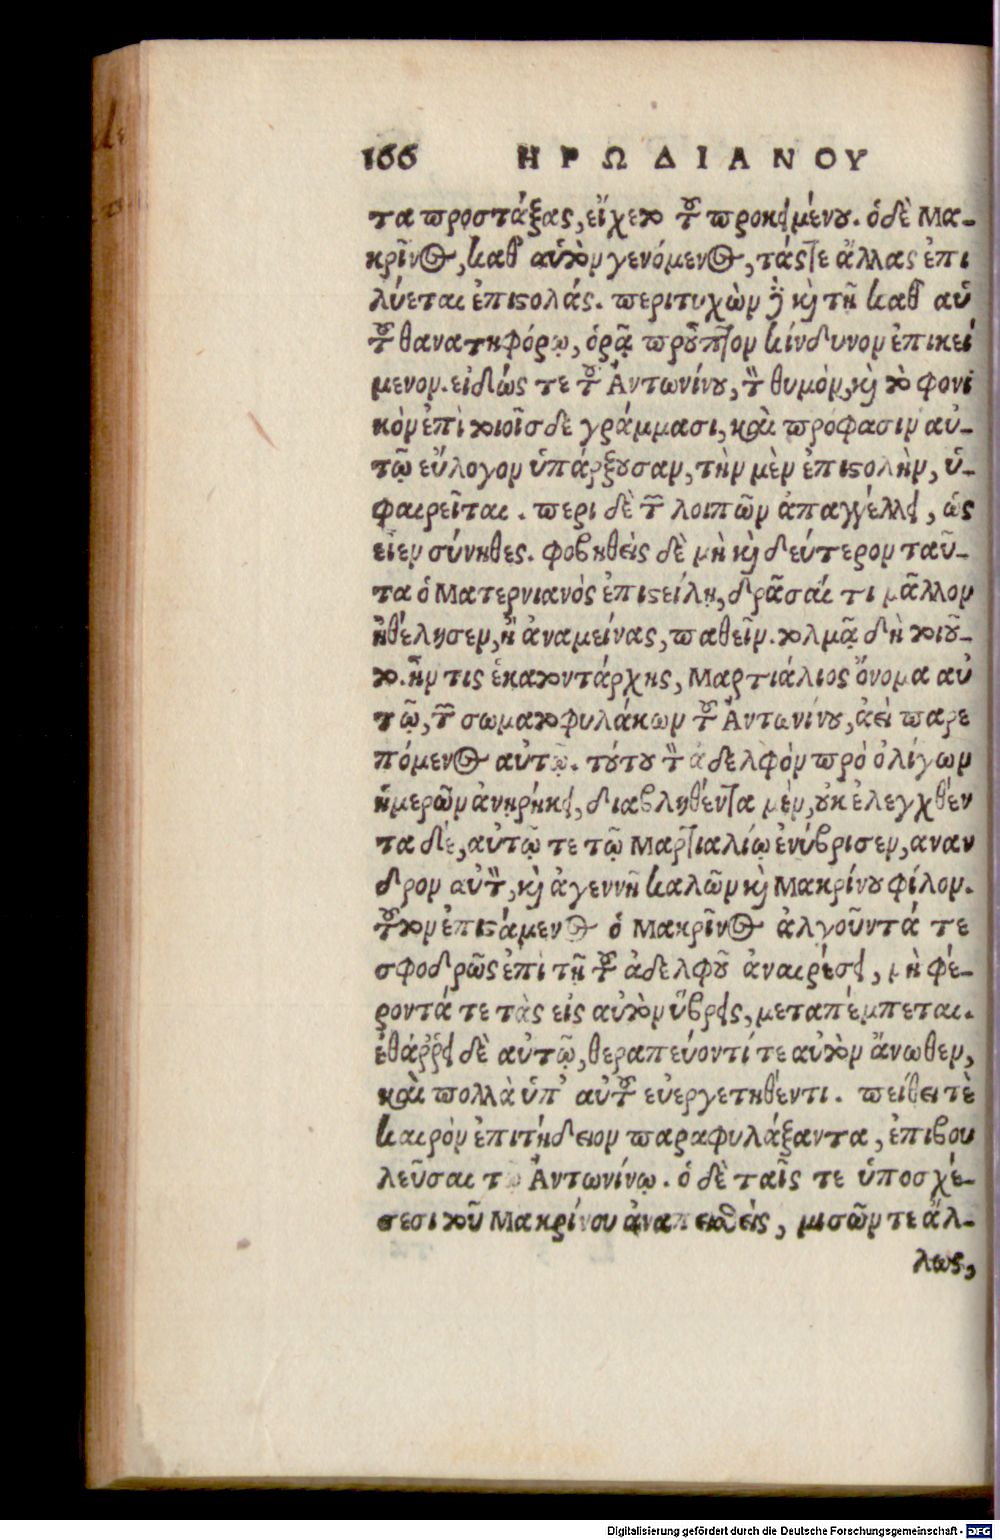 166 ΗΡΩΔΙΑΝΟΥ
τα προστάξας, εἴχετο τοῦ προκειμένου. ὁ δὲ Μα-
κρῖνος, καθ' αὑτὸν γενόμενος, τάς τε ἄλλας ἐπι
λύεται ἐπιστολάς. περιτυχὼν δὲ καὶ τῇ καθ' αὑ
τοῦ θανατηφόρῳ, ὁρᾷ προὖπτον κίνδυνον ἐπικεί
μενον. εἰδώς τε τοῦ Ἀντωνίνου, τὸν θυμόν, καὶ τὸ φονι
κὸν ἐπὶ τοιοῖσδε γράμμασι, καὶ πρόφασιν αὐ-
τῷ εὔλογον ὑπάρξουσαν, τὴν μὲν ἐπιστολὴν, ὑ-
φαιρεῖται. περι δὲ τῶν λοιπῶν ἀπαγγέλλει, ὡς
εἶεν σύνηθες. φοβηθεὶς δὲ μὴ καὶ δεύτερον ταῦ-
τα ὁ Ματερνιανὸς ἐπιστείλῃ, δρᾶσαί τι μᾶλλον
ἠθέλησεν, ἢ ἀναμείνας, παθεῖν. τολμᾷ δὴ τοιοῦ-
το. ἦν τις ἑκατοντάρχης, Μαρτιάλιος ὄνομα αὐ
τῷ, τῶν σωματοφυλάκων τοῦ Ἀντωνίνου, ἀεὶ παρε
πόμενος αὐτῷ. τούτου τὸν ἀδελφὸν πρὸ ὀλίγων
ἡμερῶν ἀνῃρήκει, διαβληθέντα μέν, οὐκ ἐλεγχθέν
τα δέ, αὐτῷ τε τῷ Μαρτιαλίῳ ἐνύβρισεν, αναν
δρον αὐτὸν, καὶ ἀγεννῆ καλῶν καὶ Μακρίνου φίλον.
τοῦτον ἐπιστάμενος ὁ Μακρῖνος ἀλγοῦντά τε
σφοδρῶς ἐπὶ τῇ τοῦ ἀδελφοῦ ἀναιρέσει, μὴ φέ-
ροντά τε τὰς εἰς αὐτὸν ὕβρεις, μεταπέμπεται.
ἐθάῤῥει δὲ αὐτῷ, θεραπεύοντί τε αὐτὸν ἄνωθεν,
καὶ πολλὰ ὑπ' αὐτοῦ εὐεργετηθέντι. πείθει τὲ
καιρὸν ἐπιτήδειον παραφυλάξαντα, ἐπιβου
λεῦσαι τῷ Ἀντωνίνῳ. ὁ δὲ ταῖς τε ὑποσχέ-
σεσι τοῦ Μακρίνου ἀναπεισθεὶς, μισῶν τε ἄλ-
λως,
Digitalisierung gefördert durch die Deutsche Forschungsgemeinschaft - DFG